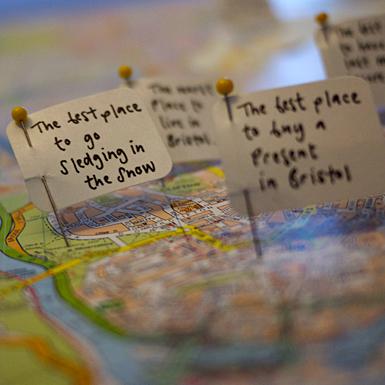 The best place
to go
Sledging in
the Snow
The worst
Place to
live in
Bristol.
The best place
to buy a
Present
in Bristol
The best
to have